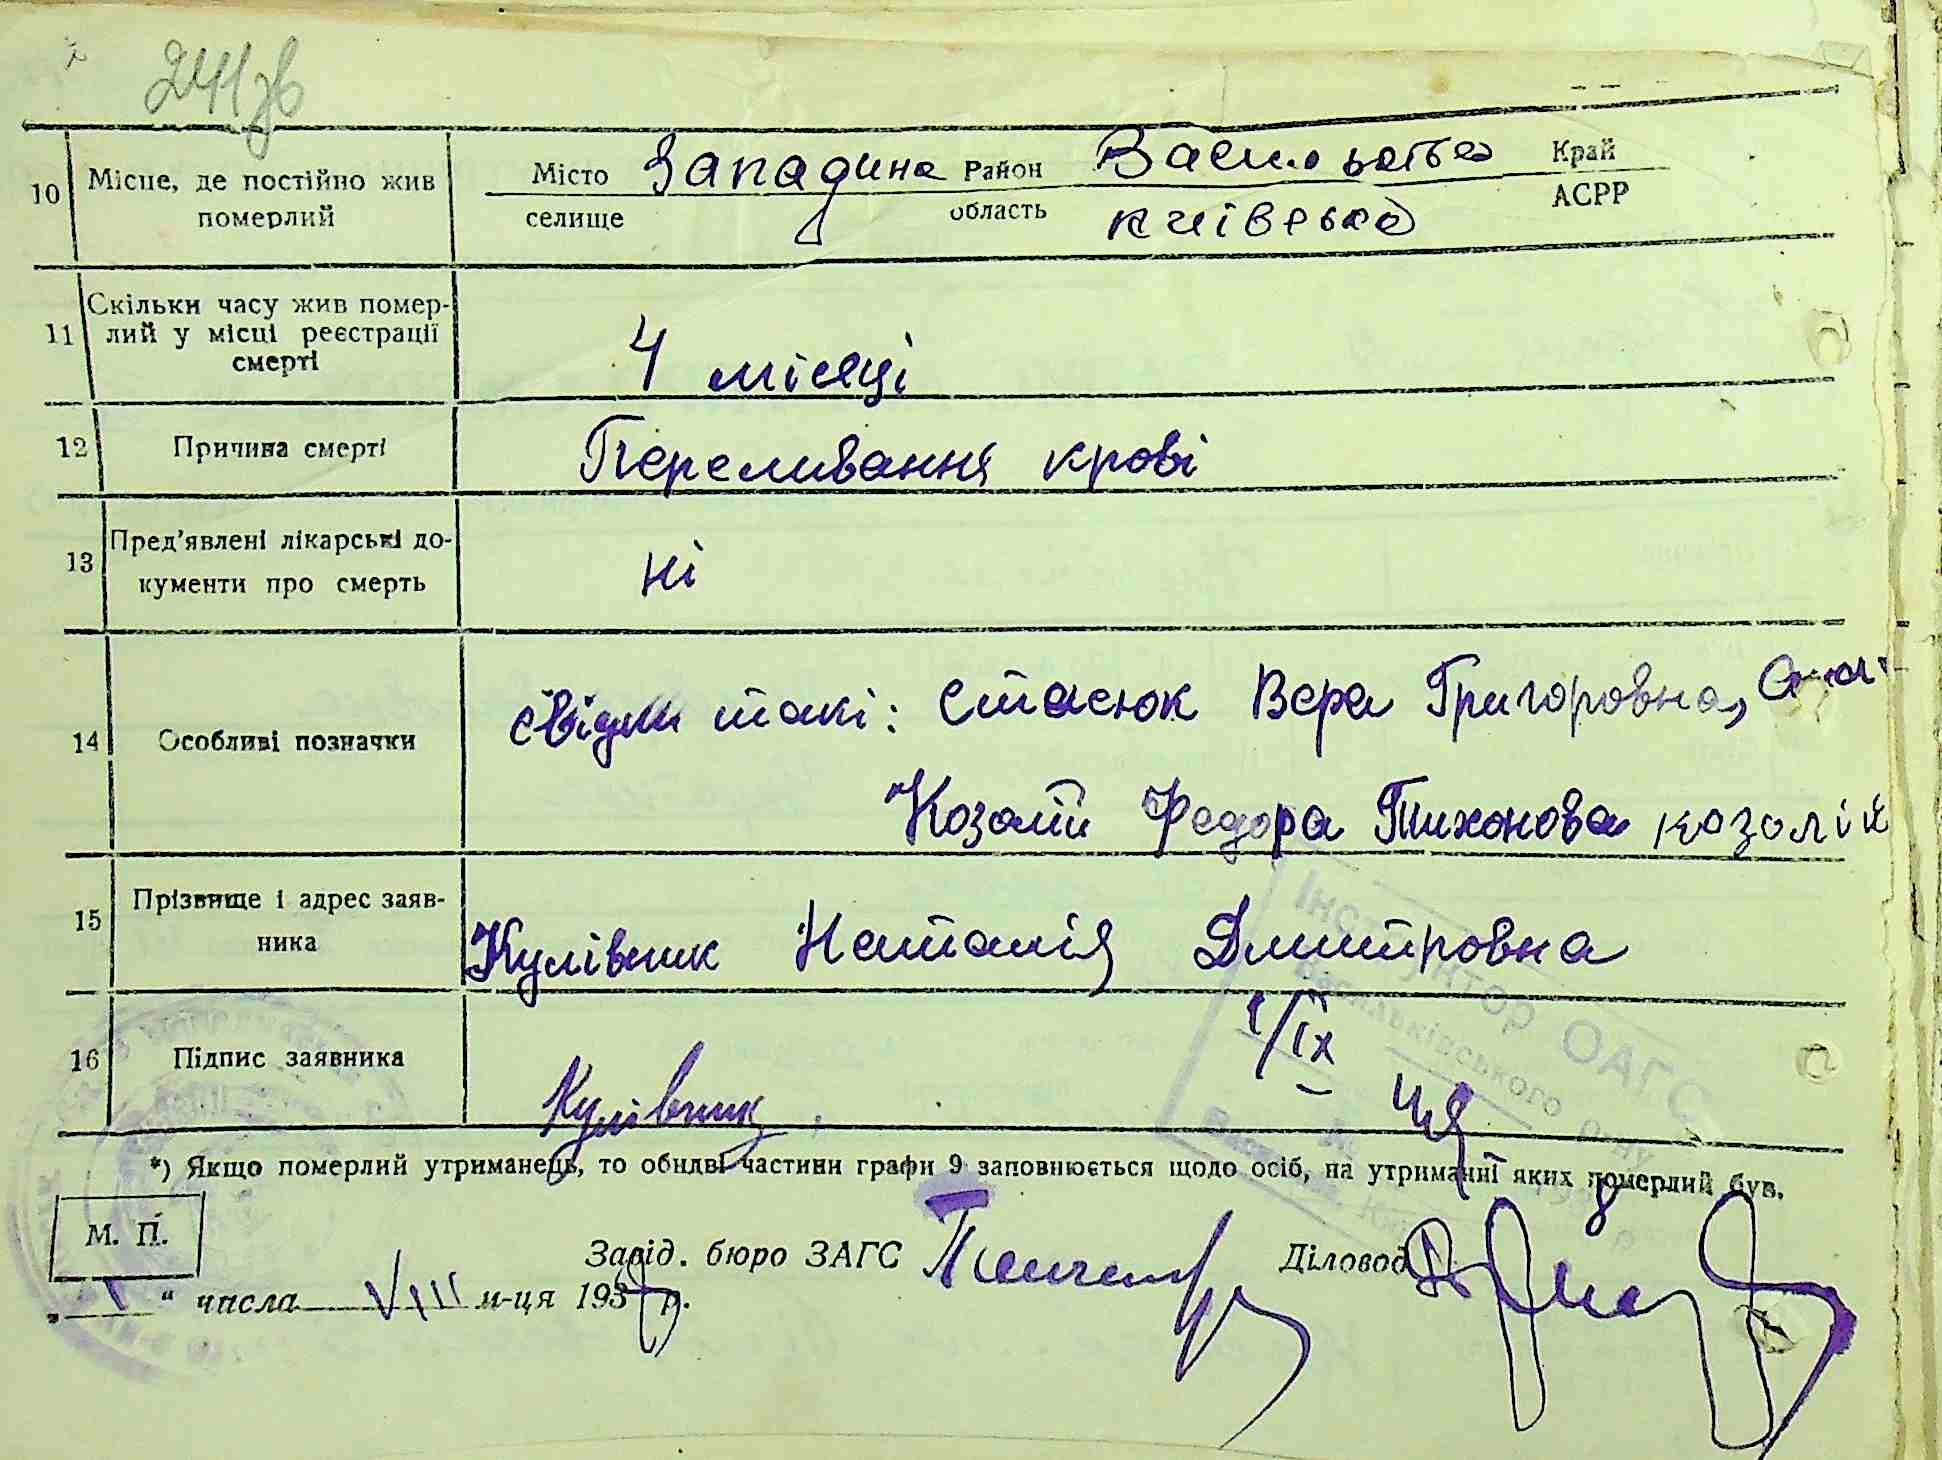 241зв
10 Місце, де постійно жив померлий
Місто Западина Район Васильків Край
селище область київська АСРР
11 Скільки часу жив помер-
лий у місці реєстрації
смерті
4 місяці
12 Причина смерті Переливання крові
13 Пред'явлені лікарські до-
кументи про смерть
ні
14 Особливі позначки
свідки такі: Стасюк Вера Григоровна,
Козолій Федора Тихонова козолій
15 Прізвище і адрес заяв-
ника
Кулівник Наталія Дмитровна
16 Підпис заявника Кулівник
1/ІХ
Інструктор ОАГС
Васильківського
*) Якщо померлий утриманець, то обидві частини графи 9 заповнюється щодо осіб, на утриманні яких померлий був.
М. П.
Завід. бюро ЗАГС Діловод
„1“ числа VIII м-ця 193 р.